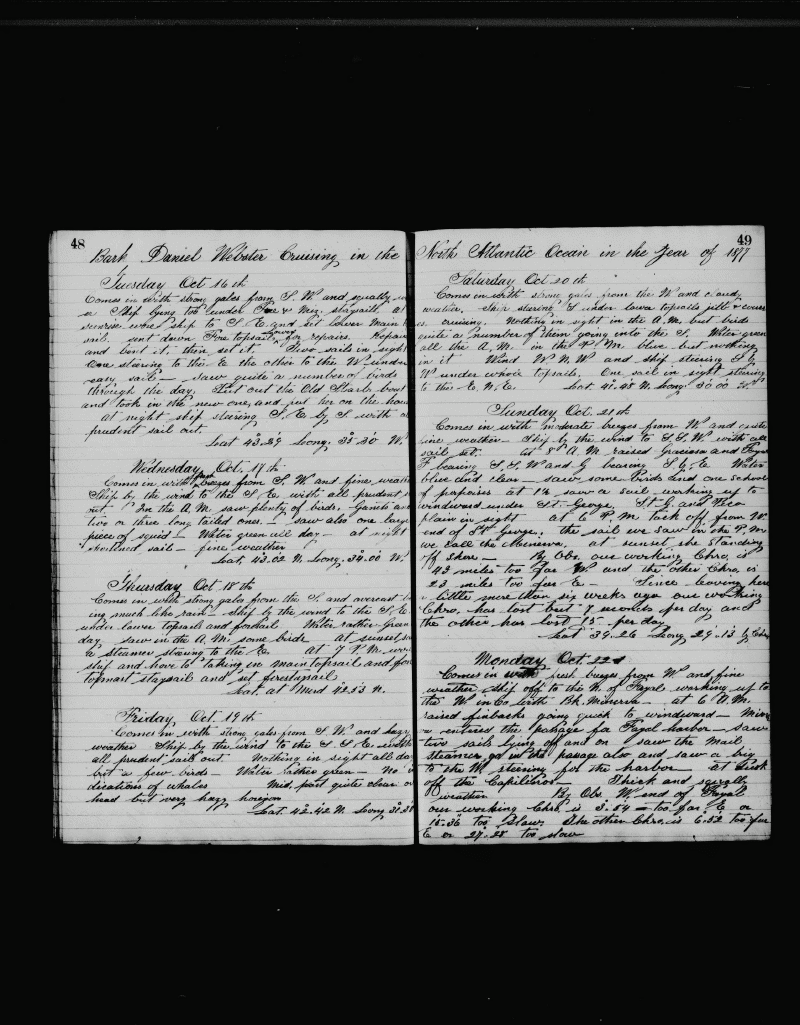 48
Bark Daniel Webster Cruising in the
Tuesday Oct 16th
Comes in with strong gales from S. W. and squally
Ship lying too under Fore & Miz. staysail, at
sunrise wore ship to S E and set lower main
sail. sent down Fore topsail, for repairs.
lower
and bent it, then set it. Two sails in sight
One steering to the E. the other to the W. under
easy sail — saw quite a number of birds
through the day. Put out the Old Starb. boat
and took in the new one, and put her on the
at night ship steering S. E by S. with a
prudent sail out.
Lat 43.29 Long. 35.30 W.
Wednesday, Oct. 17th
Comes in with breezes from S. W. and fine, weather
Ship by the wind to the S E. with all prudent
out. In the A.M. saw plenty of birds, Ganets and
two or three long tailed ones. — saw also one large
piece of squid — Water green all day — at night
shortened sail — fine weather
Lat. 43.02 N. Long. 34.00 W.
Thursday Oct 18th
Comes in with strong gales from the S. and overcast
ing much like rain — ship by the wind to the S. E
under lower topsails and foresail Water rather green
day saw in the A. M. some birds at sunset
a steamer steering to the E. at 7 P. M. wore
ship and hove to taking in main topsail and fore
topmast staysail and set forestaysail
Lat at Merd 42.53 N.
Friday, Oct. 19th
Comes in with strong gales from S. W. and hazy
weather Ship by the wind to the S. S E. with
all prudent sail out. Nothing in sight all day
but a few birds — Water rather green — No
dications of whales Mid. part quite clear
head but very hazy horizon
Lat. 42.42 N. Long 32.38
49
North Atlantic Ocean in the Year of 1877
Saturday Oct 20th
Comes in with strong gales from the W. and cloudy,
weather, ship steering S under lower topsails jibb &
cruising. Nothing in sight in the A. M. but birds
quite a number of them going into the S. Water green
all the A. M. in the P. M. blue but nothing
in it Wind W N. W and ship steering S E
under whole topsails, One sail in sight steering
to the E. N. E. Lat. 41.48 N. Long. 30.00 W.
Sunday Oct. 21th
Comes in with moderate breezes from W. and quite
fine weather — Ship by the wind to S. S. W. with all
sail set. at 8 A. M. raised Graciosa and Fayal
F bearing S. S. W and G bearing S. E. Water
blue and clear — saw some birds and one school
of porpoises at 1 1/2 saw a sail working up to
windward under St. George, St G. and Pico
plain in sight at 6 P. M. tack off from W.
end of St George. the sail we saw in the P M.
we call the Minerva, at sunset she standing
off shore — By Obs. our working Chro. is
43 miles too far W and the other Chro. is
23 miles too far E — Since leaving here
a little more than six weeks ago our working
Chro. has lost but 7 seconds per day and
the other has lost 15 per day
Lat 39.26 Long 29.13 by Chro
Monday, Oct. 22d
Comes in with fresh breezes from W. and fine
weather Ship off to the N. of Fayal working up to
the W. in Co. with Bk. Minerva — at 6 A. M.
raised finbacks going quick to windward —
entered the passage for Fayal harbor — saw
two sails lying off and on saw the mail
steamer go in the passage also and saw a big
to the W. steering for the harbor — at dusk
off the Capilition — Thick and squally
weather By Obs. W. end of Fayal
our working Chro. is 3.54 — too far E or
15.36 too slow. The other Chro. is 6.52 too far
E or 27.28 too slow